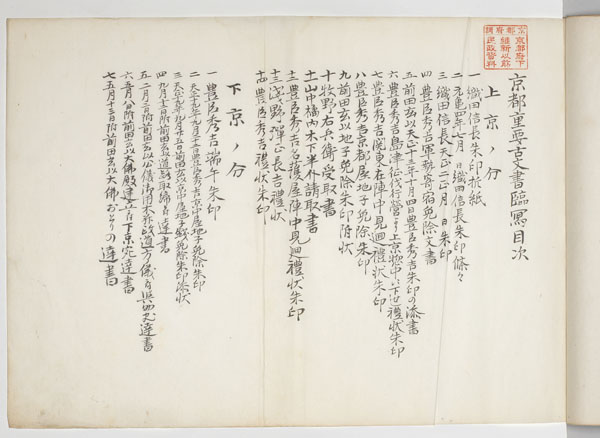 京都重要古書臨寫目次
上京ノ分
一 織田信長朱印折紙
二 元亀四年七月 日織田信長朱印條々
三 織田信長天正二年正月 日朱印
四 豊臣秀吉軍勢寄宿免除文書
五 前田玄以天正十三年十月四日豊臣秀吉朱印の添書
六 豊臣秀吉島津征伐陣營より上京惣中に下せる禮状朱印
七 豊臣秀吉関東在陣中見廻禮状朱印
八 豊臣秀吉京都屋地子免除朱印
九 前田玄以地子免除朱印附状
十 牧野右兵衛受取書
十一 山中橘内木下半介請取書
十二 豊臣秀吉名護屋陣中見廻禮状朱印
十三 浅野彈正長吉禮状
十四 豊臣秀吉禮状朱印
下京ノ分
一 豊臣秀吉端午朱印
二 天正十九年九月廿二日豊臣秀吉京中屋地子免除朱印
三 天正十九年九月廿五日前田玄以京中屋地子銭免除朱印添状
四 九月十二日附前田玄以道路取締有達書
五 二月二日附前田玄以公儀御用木 道方儀 達書
六 五月八日附前田玄以大佛殿建立 下京宛達書
七 五月十三日附前田玄以大佛 の達書